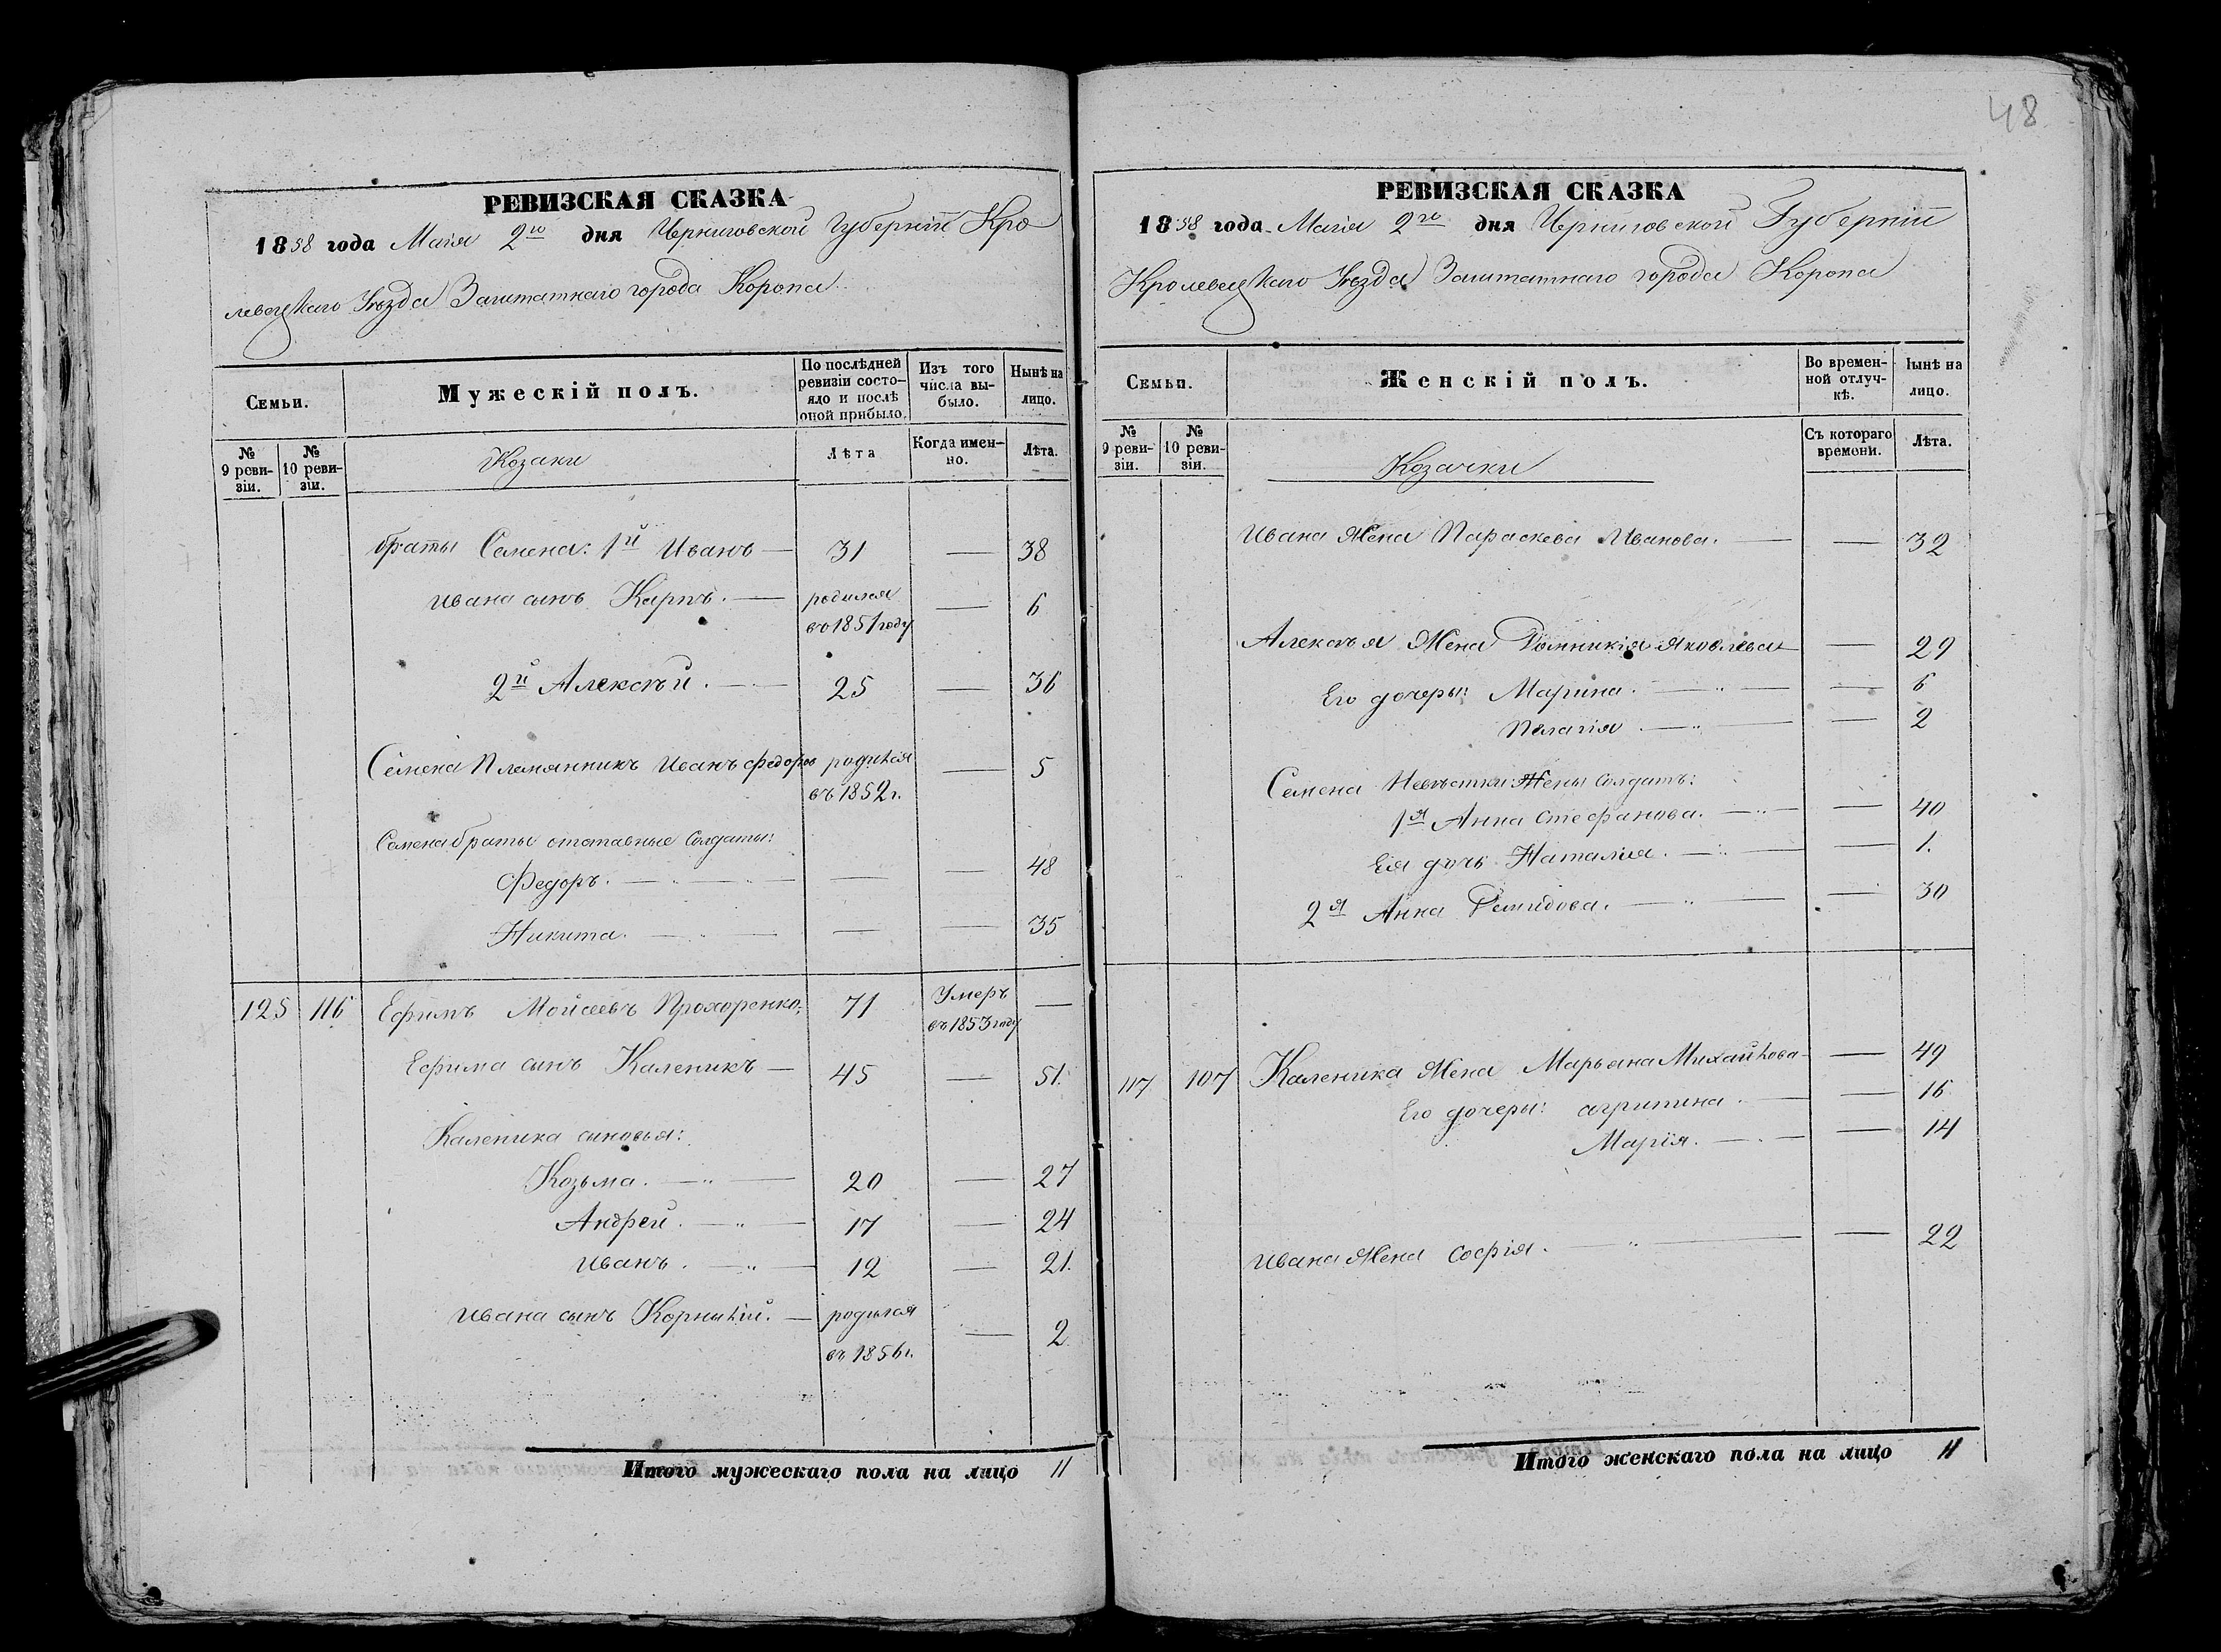 48
РЕВИЗСКАЯ СКАЗКА
1858 года Маія 2го дня Черниговской Губерніи Кро
левецкаго Уѣзда Заштатнаго города Коропа
Семьи.
Мужескій полъ.
По послѣдней ревизіи состо-
яло и послѣ оной прибыло.
Изъ того числа вы-
было.
Нынѣ на лицо.
№ 9 реви-
зіи.
№ 10 реви-
зіи.
Козаки
Лѣта
Когда имен-
но.
Лѣта.
браты Семена: 1й Иванъ — 31 — 38
Ивана сынъ Карпъ. — родился въ 1851 году — 6
2й Алексѣй. — 25 — 36
Семена Племянникъ Иванъ Федоровъ родился въ 1852 г. — 5
Семена браты отставные Солдаты:
Федоръ. — — — 48
Никита. — — — 35
125 116 Ефимъ Мойсеевъ Прохоренко, 71 Умеръ въ 1853 году —
Ефима сынъ Каленикъ — 45 — 51.
Каленика сыновья:
Козьма. — 20 — 27
Андрей. — 17 — 24
Иванъ. — 12 — 21.
Ивана сынъ Корнилій. — родился въ 1856 г. — 2
Итого мужескаго пола на лицо 11
РЕВИЗСКАЯ СКАЗКА
1858 года Маія 2го дня Черниговской Губерніи
Кролевецкаго Уѣзда Заштатнаго города Коропа
Семьи.
Женскій полъ.
Во времен-
ной отлуч-
кѣ.
Нынѣ на лицо.
№ 9 реви-
зіи.
№ 10 реви-
зіи.
Козачки
Съ котораго времени.
Лѣта.
Ивана Жена Параскева Иванова. — — 32
Алексѣя Жена Домникія Яковлева — — 29
Его дочеры: Марина. — — 6
Пелагія — — 2
Семена Невѣстки: Жены Солдатъ:
1я Анна Стефанова. — — 40
Ея дочь Наталия. — — 1.
2я Анна Демидова. — — 30
117 107 Каленика Жена Марьяна Михайлова — — 49
Его дочеры: агрипина. — — 16
Марія. — — 14
Ивана Жена Софія. — — 22
Итого женскаго пола на лицо 11